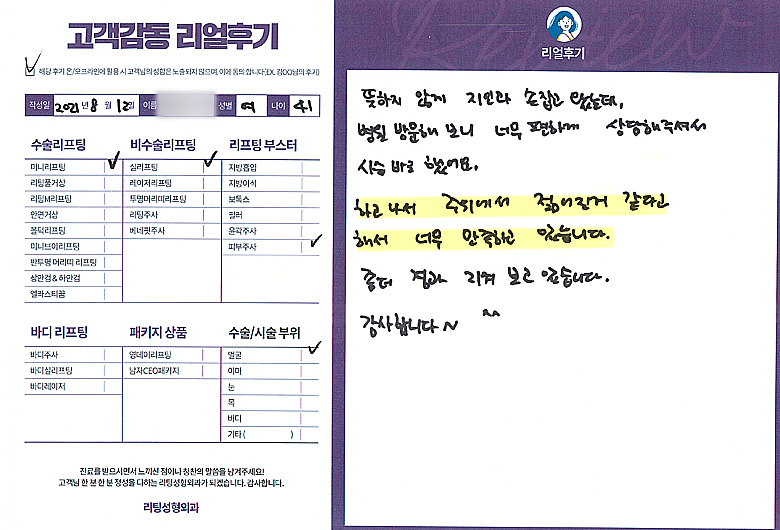 고객감동 리얼후기
해당 후기 온/오프라인에 활용 시 고객님의 성함은 노출되지 않으며, 이에 동의 합니다(EX. 김OO님의 후기)
작성일 2021년 8월 12일 이름 성별 여 나이 41
수술리프팅
미니리프팅
리팅풀거상
리팅M리프팅
안면거상
불덕리프팅
미니브이리프팅
반투명 머리띠 리프팅
상안검 & 하안검
엘라스티꿈
비수술리프팅
실리프팅
레이저리프팅
투명머리띠리프팅
리팅주사
버네핏주사
리프팅 부스터
지방흡입
지방이식
보톡스
필러
윤곽주사
피부주사
바디 리프팅
바디주사
바디실리프팅
바디레이저
패키지 상품
영데이리프팅
남자CEO패키지
수술/시술 부위
얼굴
이마
눈
목
바디
기타 ( )
진료를 받으시면서 느끼신 점이나 칭찬의 말씀을 남겨주세요!
고객님 한 분 한 분 정성을 다하는 리팅성형외과가 되겠습니다. 감사합니다.
리팅성형외과
Review
리얼후기
뜻하지 않게 지인과 손잡고 왔는데,
병원 방문해 보니 너무 편하게 상담해주셔서
시술 바로 했어요.
하고 나서 주위에서 젊어진거 같다고
해서 너무 만족하고 있습니다.
좀더 경과 지켜 보고 있습니다.
감사합니다~ ^^